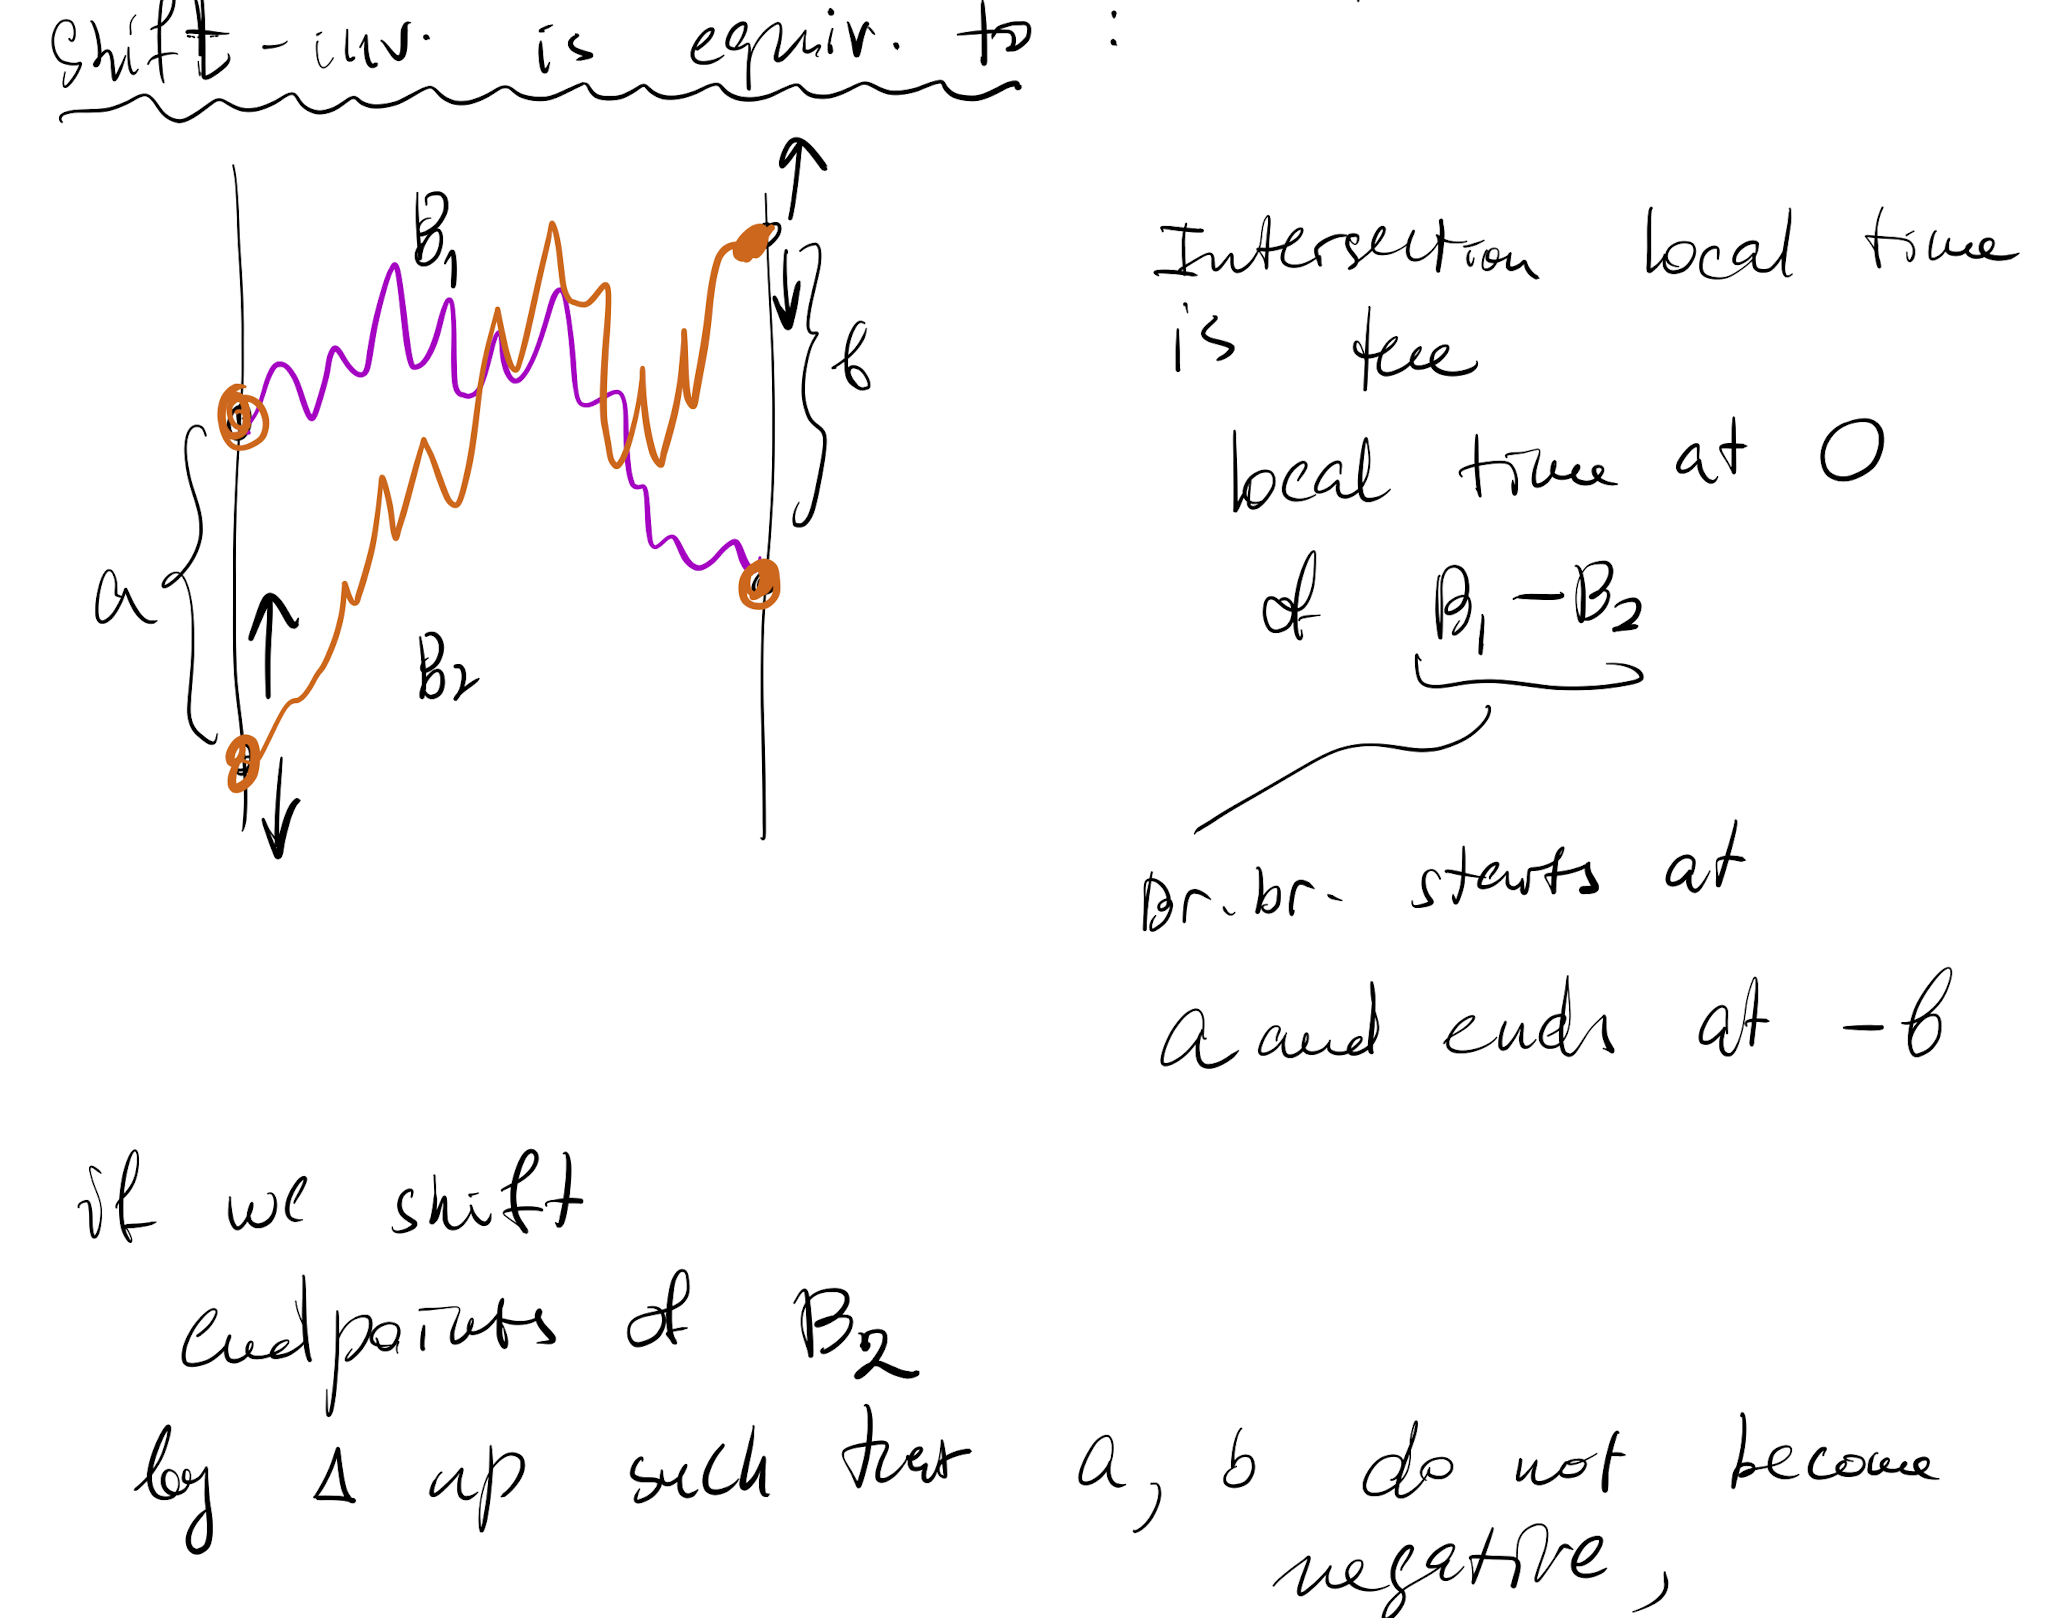 Shift-inv. is equiv. to :
B₁
b
a
B₂
Intersection local time
is the
local time at 0
of B₁ – B₂
Br. br. starts at
a and ends at – b
if we shift
endpoints of B₂
by Δ up such that a, b do not become
negative,